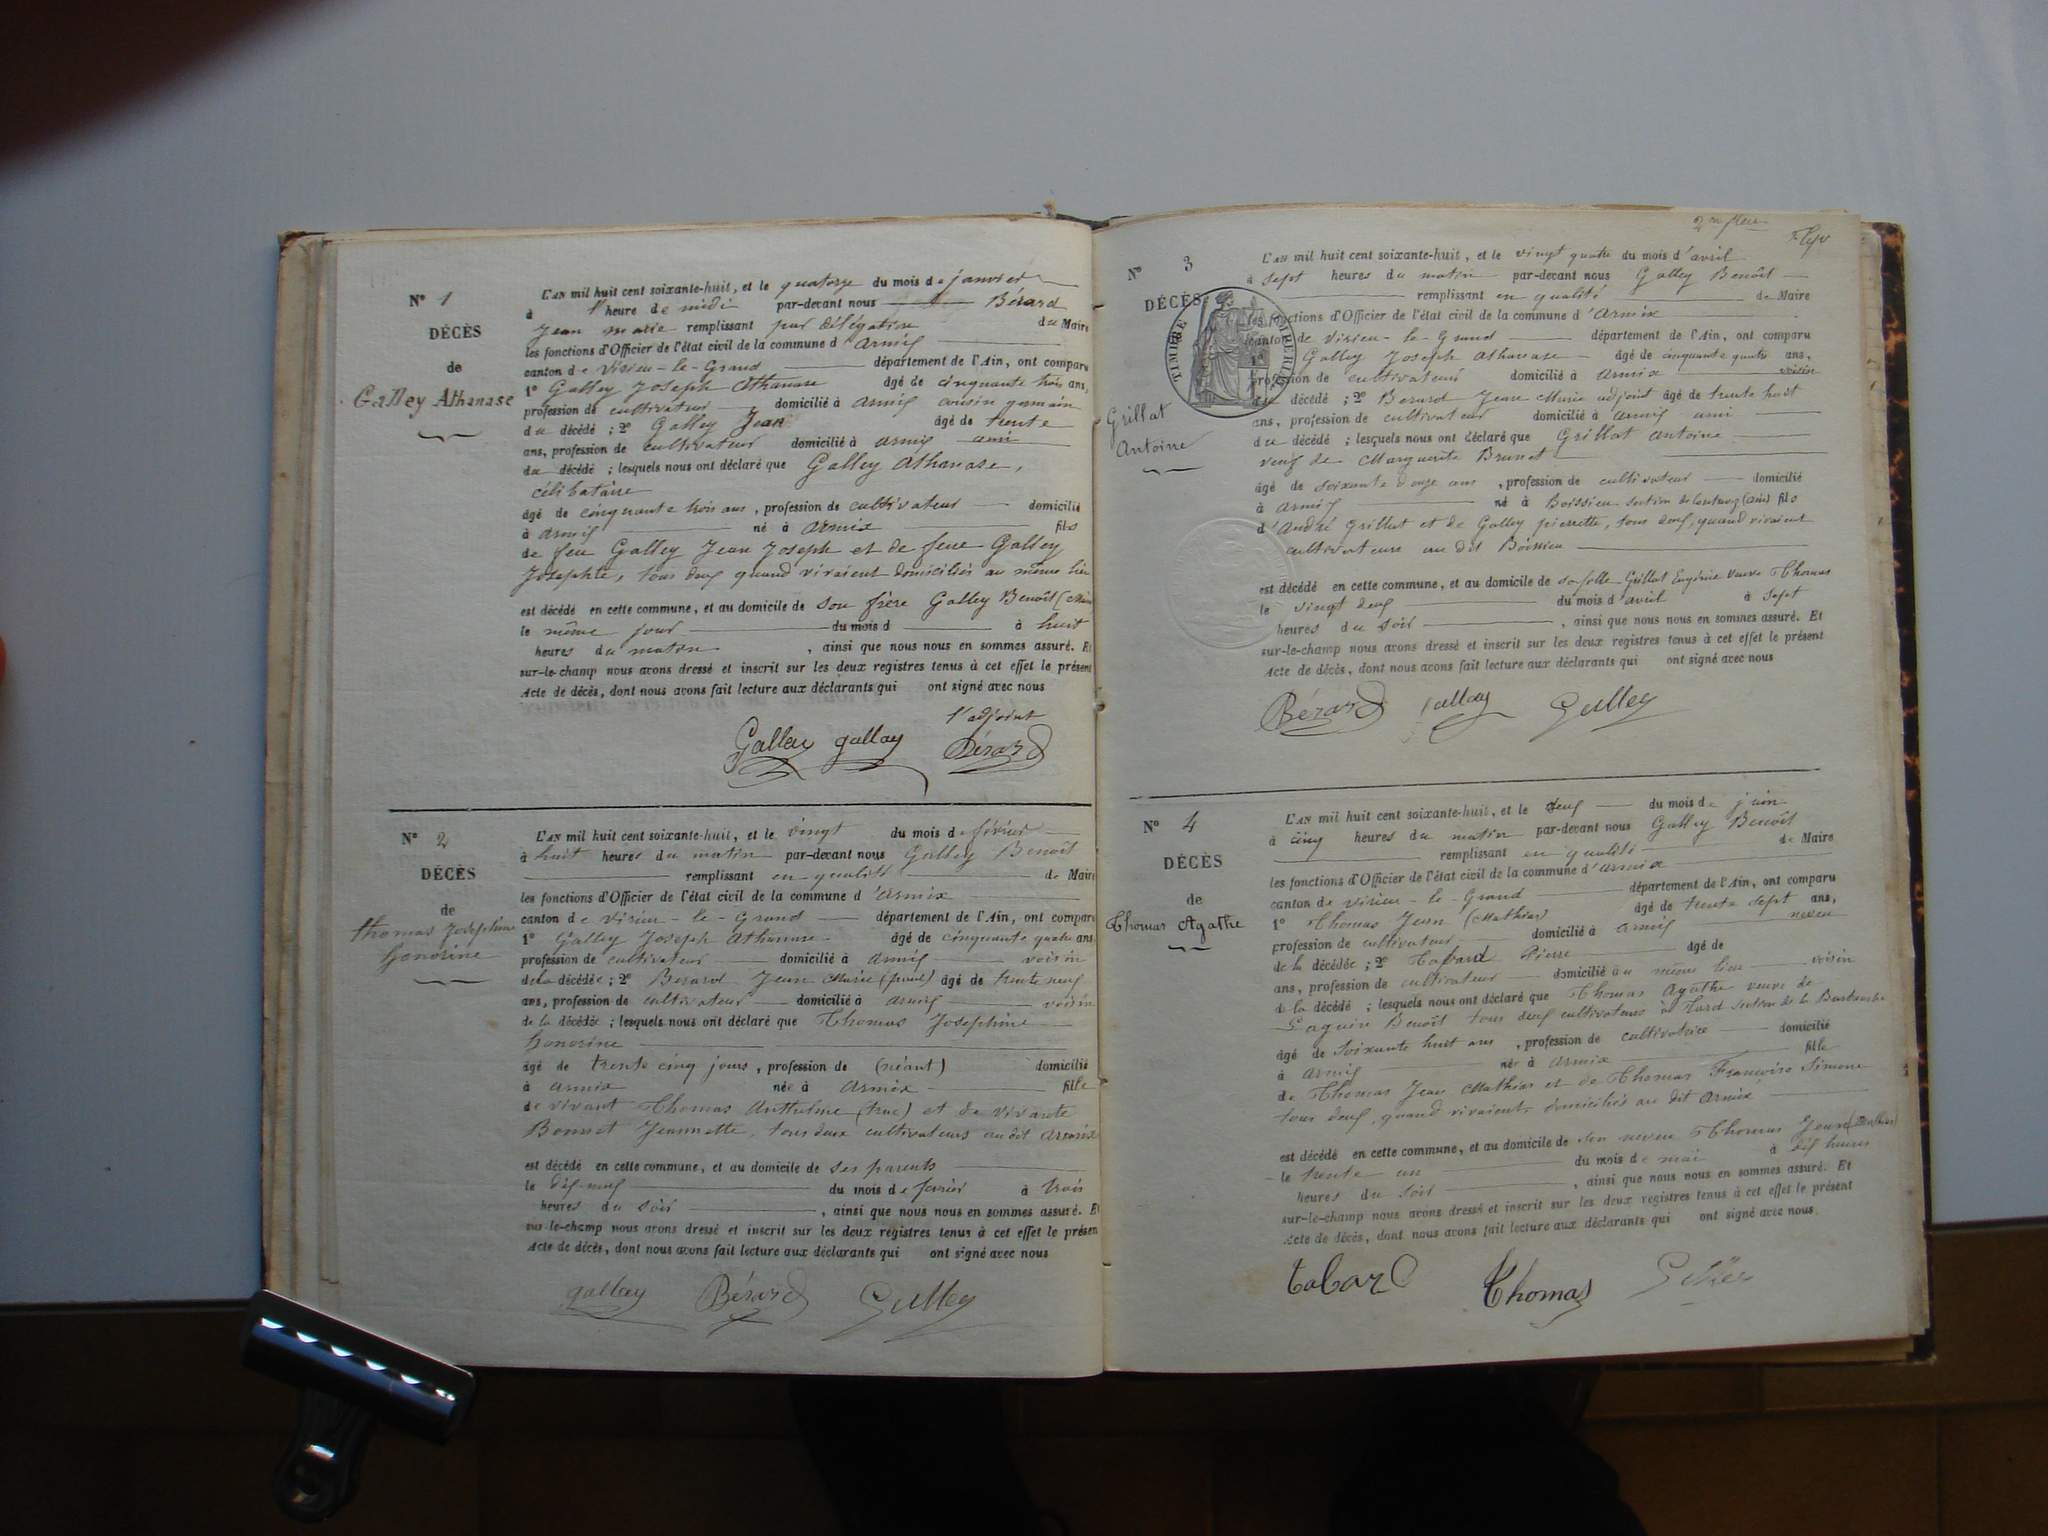 Nº 1
DÉCÈS
de
Galley Athanase
L'AN mil huit cent soixante-huit, et le quatorze du mois de janvier
à l'heure de midi par-devant nous Bérard
Jean marie remplissant par délégation du Maire
les fonctions d'Officier de l'état civil de la commune d'armix
canton de Virieu-le-Grand département de l'Ain, ont comparu
1º Galley Joseph Athanase âgé de cinquante trois ans,
profession de cultivateur domicilié à armix cousin germain
du décédé ; 2º Galley Jean âgé de trente
ans, profession de cultivateur domicilié à armix ami
du décédé ; lesquels nous ont déclaré que Galley Athanase,
célibataire
âgé de cinquante trois ans, profession de cultivateur domicilié
à armix né à armix fils
de feu Galley Jean Joseph et de feue Galley
Josephte, tous deux quand vivaient domiciliés au même lieu
est décédé en cette commune, et au domicile de son frère Galley Benoît (Maire)
le même jour du mois d à huit
heures du matin, ainsi que nous nous en sommes assuré. Et
sur-le-champ nous avons dressé et inscrit sur les deux registres tenus à cet effet le présent
Acte de décès, dont nous avons fait lecture aux déclarants qui ont signé avec nous
l'adjoint
Galley gallay Bérard
Nº 2
DÉCÈS
de
Thomas Josephine
honorine
L'AN mil huit cent soixante-huit, et le vingt du mois de février
à huit heures du matin par-devant nous Galley Benoît
remplissant en qualité de Maire
les fonctions d'Officier de l'état civil de la commune d'armix
canton de Virieu-le-Grand département de l'Ain, ont comparu
1º Galley Joseph Athanase âgé de cinquante quatre ans,
profession de cultivateur domicilié à armix voisin
de la décédée ; 2º Berard Jean Marie âgé de trente neuf
ans, profession de cultivateur domicilié à armix voisin
de la décédée ; lesquels nous ont déclaré que Thomas Josephine
honorine
âgé de trente cinq jours, profession de (néant) domicilié
à armix née à armix fille
de vivant Thomas Anthelme et de vivante
Bonnet Jeannette, tous deux cultivateurs au dit armix
est décédé en cette commune, et au domicile de ses parents
le dix-neuf du mois de février à trois
heures du soir, ainsi que nous nous en sommes assuré. Et
sur-le-champ nous avons dressé et inscrit sur les deux registres tenus à cet effet le présent
Acte de décès, dont nous avons fait lecture aux déclarants qui ont signé avec nous
gallay Bérard Galley
Nº 3
DÉCÈS
TIMBRE IMPÉRIAL
Grillat
Antoine
L'AN mil huit cent soixante-huit, et le vingt quatre du mois d'avril
à sept heures du matin par-devant nous Galley Benoît
remplissant en qualité de Maire
les fonctions d'Officier de l'état civil de la commune d'armix
canton de Virieu-le-Grand département de l'Ain, ont comparu
1º Galley Joseph Athanase âgé de cinquante quatre ans,
profession de cultivateur domicilié à armix voisin
du décédé ; 2º Berard Jean Marie adjoint âgé de trente huit
ans, profession de cultivateur domicilié à armix ami
du décédé ; lesquels nous ont déclaré que Grillat antoine
veuf de Marguerite Brunet
âgé de soixante douze ans, profession de cultivateur domicilié
à armix né à Boissieu section de (ain) fils
d'André Grillat et de Galley pierrette, tous deux, quand vivaient
cultivateurs au dit Boissieu
est décédé en cette commune, et au domicile de sa fille Grillat Eugénie veuve Thomas
le vingt deux du mois d'avril à sept
heures du soir, ainsi que nous nous en sommes assuré. Et
sur-le-champ nous avons dressé et inscrit sur les deux registres tenus à cet effet le présent
Acte de décès, dont nous avons fait lecture aux déclarants qui ont signé avec nous
Bérard gallay Galley
Nº 4
DÉCÈS
de
Thomas Agathe
L'AN mil huit cent soixante-huit, et le deux du mois de juin
à cinq heures du matin par-devant nous Galley Benoît
remplissant en qualité de Maire
les fonctions d'Officier de l'état civil de la commune d'armix
canton de Virieu-le-Grand département de l'Ain, ont comparu
1º Thomas Jean (Mathias) âgé de trente sept ans,
profession de cultivateur domicilié à armix neveu
de la décédée ; 2º Tabard Pierre âgé de
ans, profession de cultivateur domicilié au même lieu voisin
de la décédé ; lesquels nous ont déclaré que Thomas Agathe veuve de
Benoît tous deux cultivateurs à section de la
âgé de soixante huit ans, profession de cultivatrice domicilié
à armix née à armix fille
de Thomas Jean Mathias et de Thomas Françoise Simone
tous deux, quand vivaient, domiciliés au dit armix
est décédé en cette commune, et au domicile de son neveu Thomas Jean (Mathias)
le trente un du mois de mai à dix heures
heures du soir, ainsi que nous nous en sommes assuré. Et
sur-le-champ nous avons dressé et inscrit sur les deux registres tenus à cet effet le présent
Acte de décès, dont nous avons fait lecture aux déclarants qui ont signé avec nous.
tabard Thomas Galley